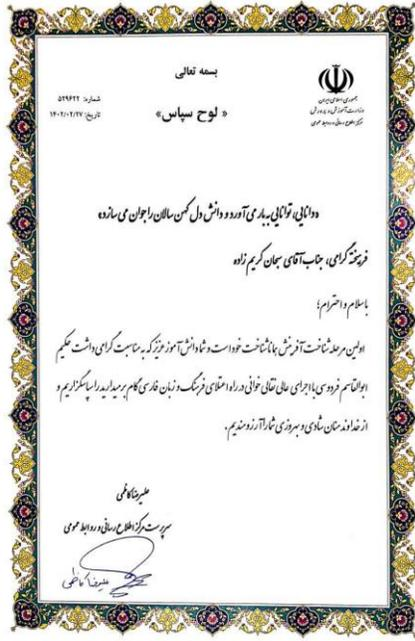 بسمه تعالی
جمهوری اسلامی ایران
وزارت آموزش و پرورش
مرکز اطلاع رسانی و روابط عمومی
« لوح سپاس»
شماره: ۵۲۹۶۲۲
تاریخ: ۱۴۰۲/۰۲/۲۷
«دانایی، توانایی به بار می آورد و دانش دل کهن سالان را جوان می سازد»
فرهیخته گرامی، جناب آقای سبحان کریم زاده
با سلام و احترام؛
اولین مرحله شناخت آفرینش همانا شناخت خود است و شما دانش آموز عزیز که به مناسبت گرامی داشت حکیم
ابوالقاسم فردوسی با اجرای عالی نقالی خوانی در راه اعتلای فرهنگ و زبان فارسی گام برمیدارید را سپاسگزاریم و
از خداوند منان شادی و بهروزی شما را آرزومندیم.
علیرضا کاظمی
سرپرست مرکز اطلاع رسانی و روابط عمومی
علیرضا کاظمی